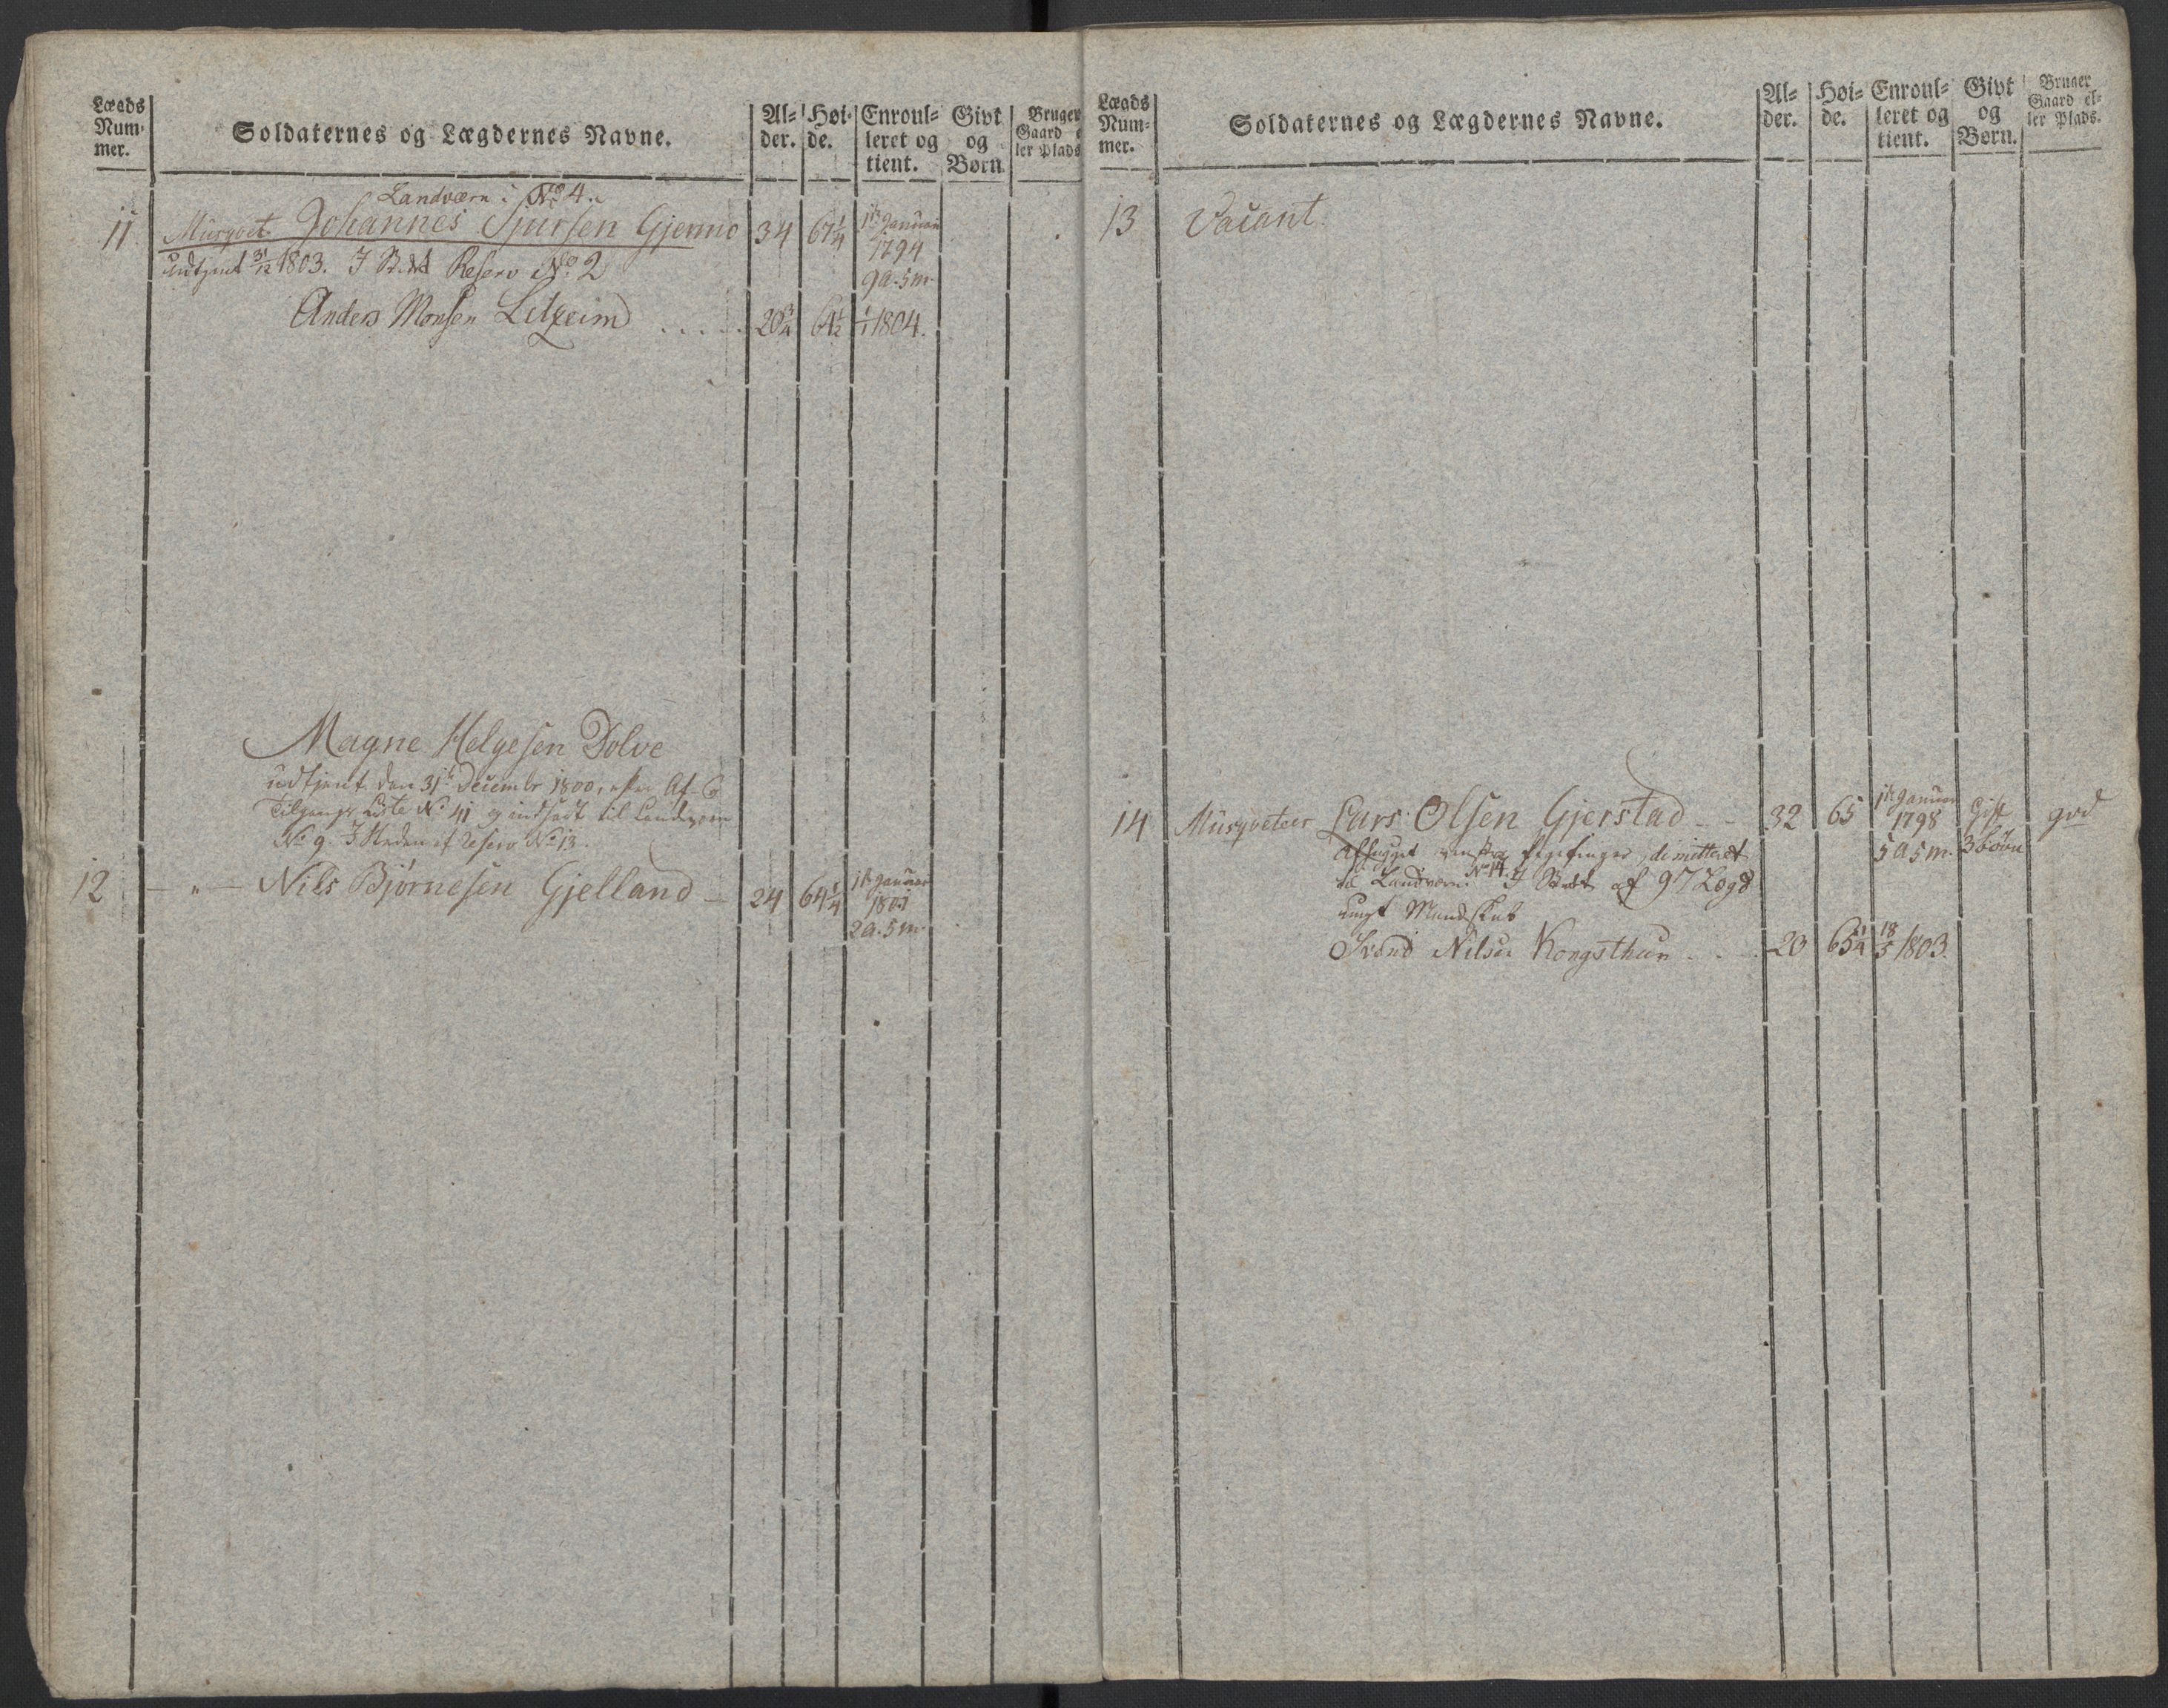 Lægds Num- mer.
Soldaternes og Lægdernes Navne.
Al- der.
Høi- de.
Enroul- leret og tient.
Givt og Børn.
Bruger Gaard e ler Plads
Landværn: No 4.
11 Musqvet. Johannes Sjursen Gjermo 34 67 1/4 1te Januari 1794 9a. 5m.
udtjent 31/12 1803. I Stedet Reserv No 2
Anders Monsen Litzeim 20 3/4 64 1/2 1/1 1804.
Magne Helgesen Dolve
udtjent den 31te Decembr 1800, efter Af- &
Tilgangs Liste No 41 og indsadt til Landværn
No 9. I Steden af Reserv No 13.
12 — " — Nils Bjørnesen Gjelland — 24 64 1/4 1te Januari 1801 2a. 5m.
Lægds Num- mer.
Soldaternes og Lægdernes Navne.
Al- der.
Høi- de.
Enroul- leret og tient.
Givt og Børn.
Bruger Gaard el- ler Plads.
13 Vacant.
14 Musqveteer Lars Olsen Gjerstad 32 65 1te Januari 1798 5a 5m. Gift 3 børn grd
Afhugget venstre pegefinger, dimitteret
til Landværn No 14. I Stedet af 97 Lægd
ungt Mandskab
Svend Nilsen Kongsthun 20 65 1/4 18/5 1803.